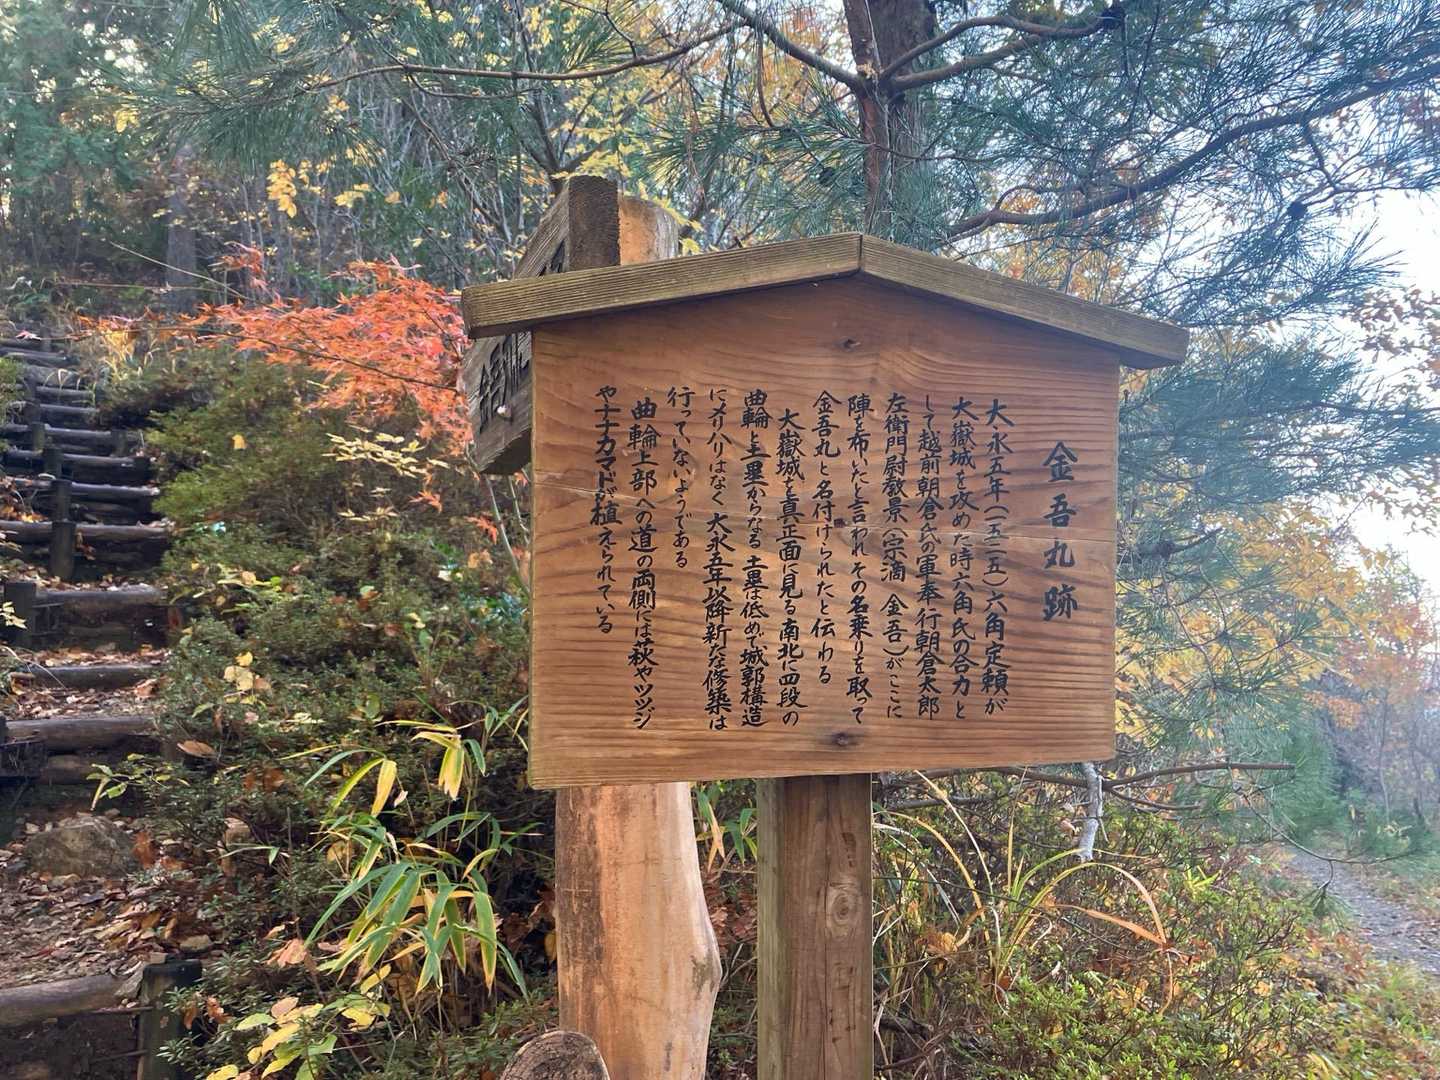 金吾丸跡
大永五年(一五二五)六角定頼が
大嶽城を攻めた時六角氏の合力と
して越前朝倉氏の軍奉行朝倉太郎
左衛門尉教景(宗滴 金吾)がここに
陣を布いたと言われその名乗りを取って
金吾丸と名付けられたと伝わる
大嶽城を真正面に見る南北に四段の
曲輪と土塁からなる 土塁は低めで城郭構造
にメリハリはなく 大永五年以降新たな修築は
行っていないようである
曲輪上部への道の両側には萩やツツジ
やナナカマドが植えられている
金吾